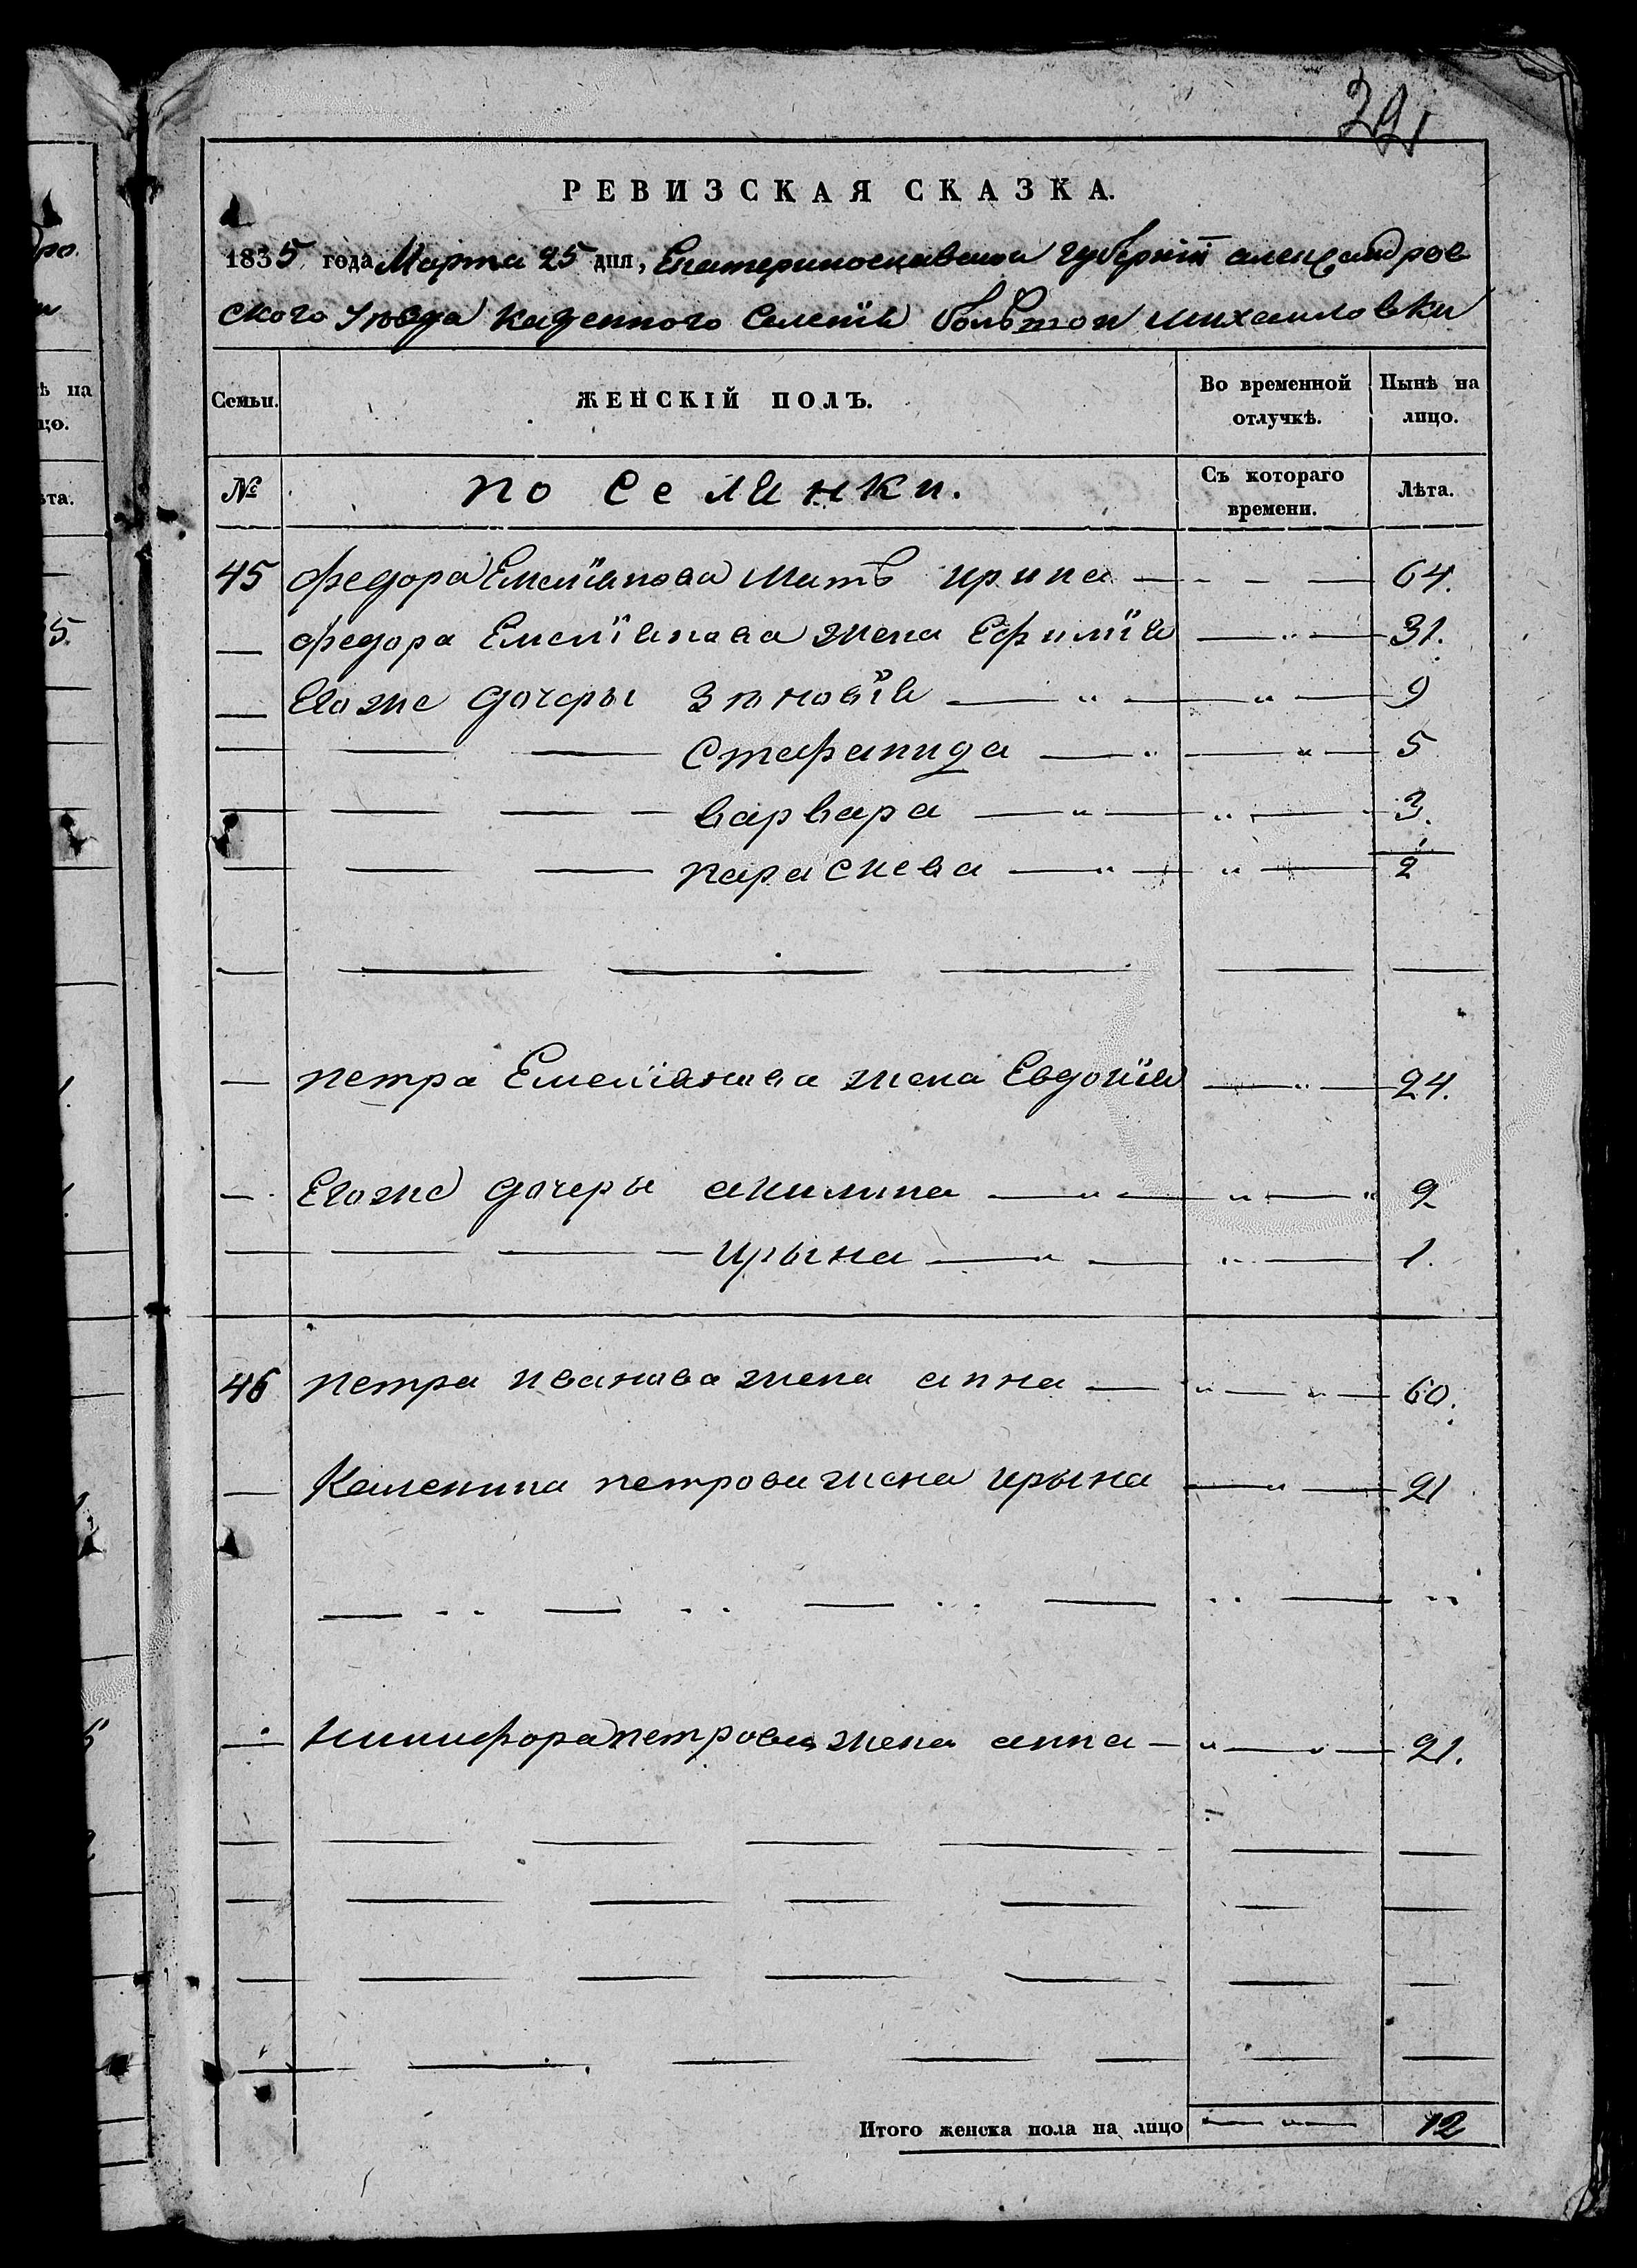 291
РЕВИЗСКАЯ СКАЗКА.
1835 года Марта 25 дня, Екатеринославской губернїи александров
ского Уѣзда казенного Селенїя больтои михаиловки
Семьи. ЖЕНСКІЙ ПОЛЪ. Во временной отлучкѣ. Нынѣ на лицо.
№ поселянки. Съ котораго времени. Лѣта.
45 федора Емелїянова мать ирина — 64.
— федора Емелїянава жена Ефимїя — " — 31.
— Егоже дочеры Зѣновїя — " — " — 9
— — — Стафанида — " — " — 5
— — — варвара — " — " — 3.
— — — параскева — " — " — 1/2
— петра Емелїянава жена Евдокїя — " — 24.
— Егоже дочеры акилина — " — " — " 2
— — — Ирына — " — " — 1.
46 петра иванава жена анна — " — " — 60.
— Каленика петрова жена ирына — " — 21
— никифора петрова жена анна — " — 21.
Итого женска пола на лицо — " — 12
ро.
и
ѣ на
цо.
ѣта.
5.